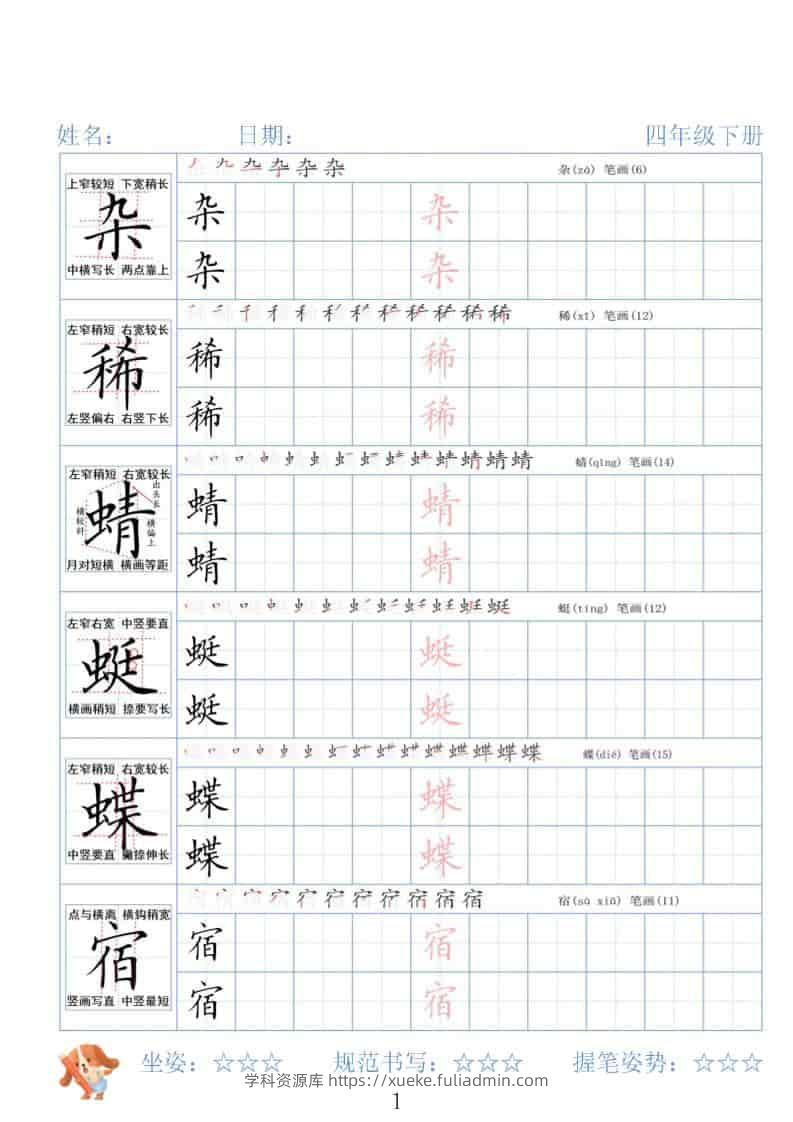 姓名： 日期： 四年级下册
杂(zá) 笔画(6)
上窄较短 下宽稍长
杂
中横写长 两点靠上
杂 杂
杂 杂
稀(xī) 笔画(12)
左窄稍短 右宽较长
稀
左竖偏右 右竖下长
稀 稀
稀 稀
蜻(qīng) 笔画(14)
左窄稍短 右宽较长
出头长
横较斜
横偏上
蜻
月对短横 横画等距
蜻 蜻
蜻 蜻
蜓(tíng) 笔画(12)
左窄右宽 中竖要直
蜓
横画稍短 捺要写长
蜓 蜓
蜓 蜓
蝶(dié) 笔画(15)
左窄稍短 右宽较长
蝶
中竖要直 撇捺伸长
蝶 蝶
蝶 蝶
宿(sù xiǔ) 笔画(11)
点与横离 横鈎稍宽
宿
竖画写直 中竖最短
宿 宿
宿 宿
坐姿：☆☆☆ 规范书写：☆☆☆ 握笔姿势：☆☆☆
学科资源库 https://xueke.fuliadmin.com
1